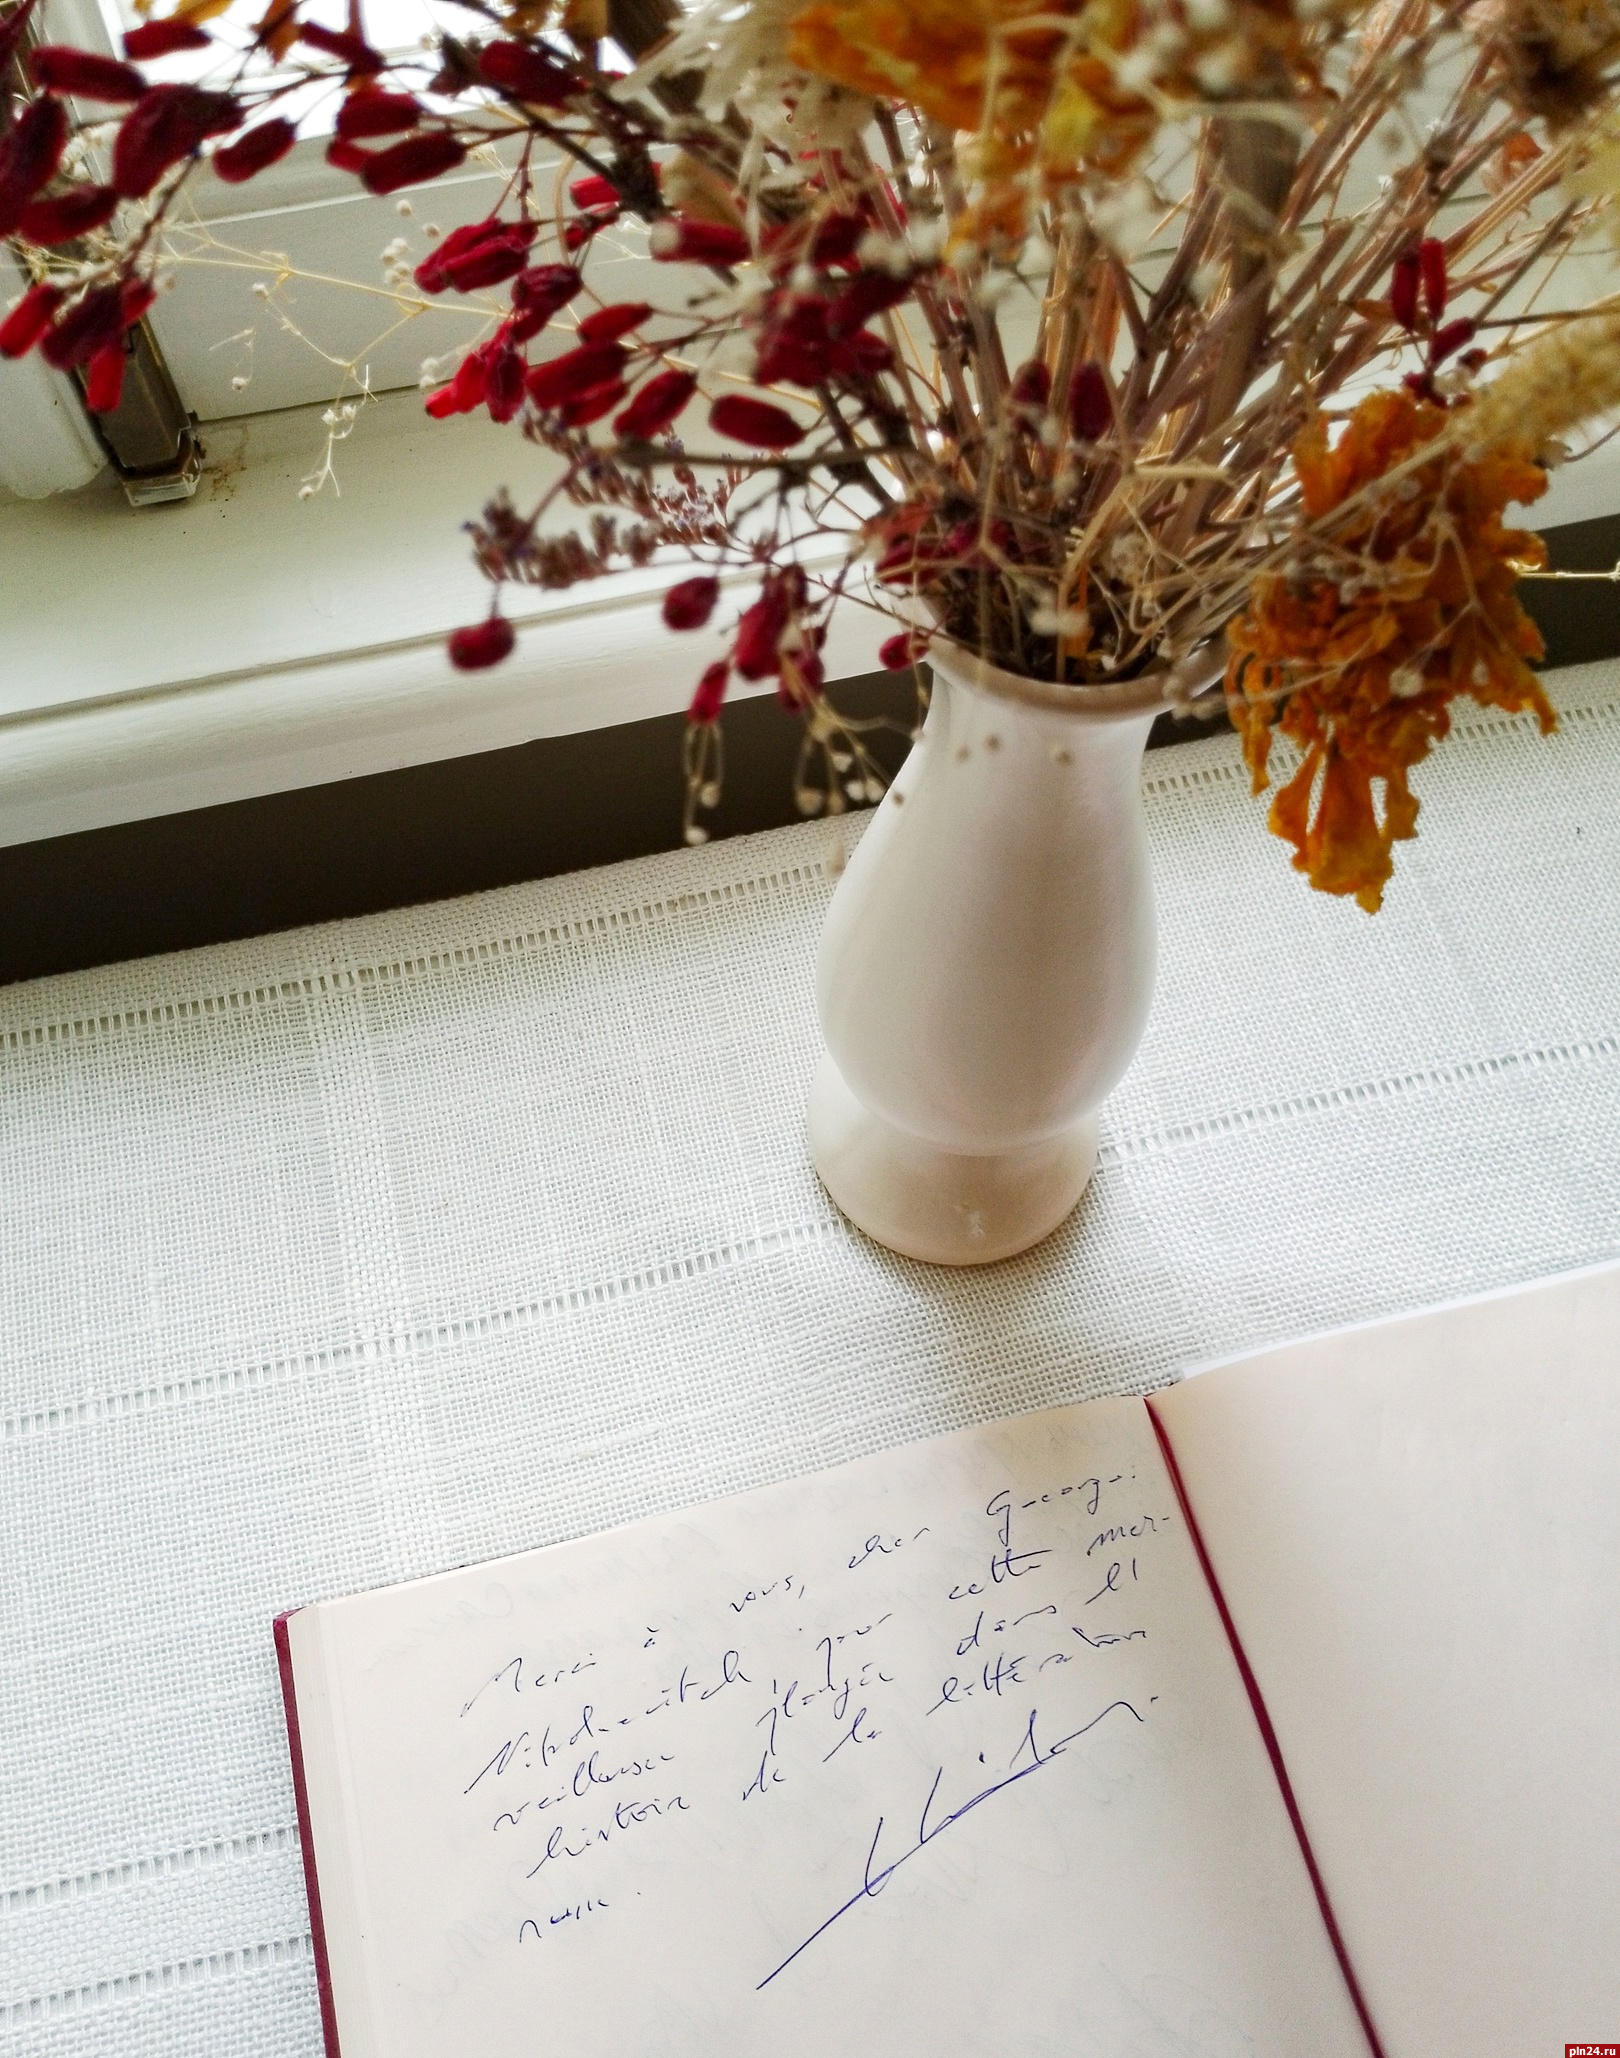 Merci à vous, cher Gueorgui
pour cette mer-
veilleuse plongée dans l'
histoire de la littérature
russe.
pln24.ru